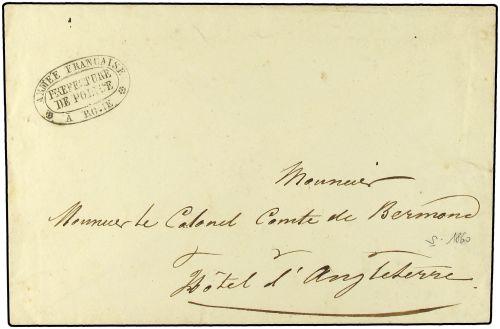 ARMÉE FRANÇAISE
PREFECTURE
DE POLICE
À ROME
Monsieur
Monsieur le Colonel Comte de Bermond
Hôtel d'Angleterre
1860